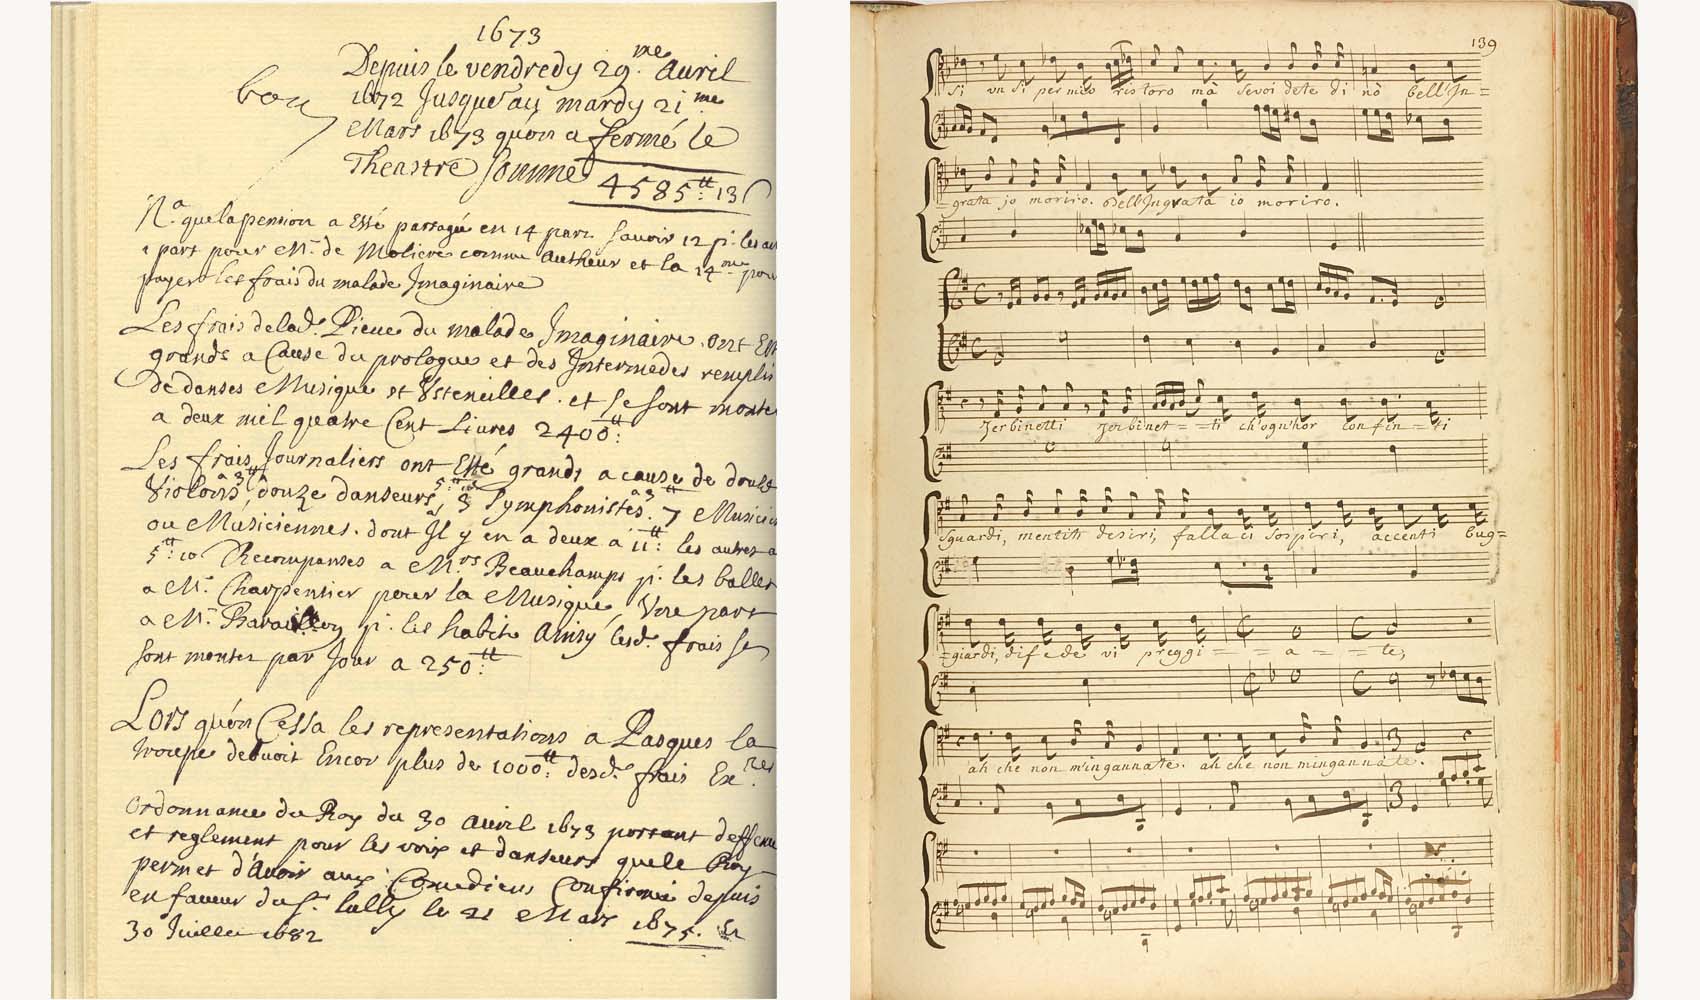 1673
Depuis le vendredy 29.me Auril
1672 Jusques au mardy 21me
Mars 1673 qu'on a fermé le
Theastre Somme
4585tt: 13
Na. que la pension a Esté partagée en 14 pars Sauoir 12 pr. les
1 part pour Mr. de Moliere comme Autheur et la 14me pour
payer les frais du malade Imaginaire
Les frais de lad. Piece du malade Imaginaire. ont
grands a Cause du prologue et des Intermedes remplis
de danses Musique et Ustencilles. et se sont
a deux mil quatre Cent Liures 2400tt:
Les frais Journaliers ont Esté grands a cause de
Violons a 3tt douze danseurs a 5tt 3 Symphonistes a 3tt 7
ou Musiciennes. dont Il y en a deux a 11tt: les autres a
5tt: 10 Recompenses a Mrs Beauchamps pr. les ballets
a Mr. Charpentier pour la Musique, Vne part
a Mr. Baraillon pr. les habits Ainsy lesd. frais se
sont montez par Jour a 250tt:
Lors qu'on Cessa les representations a Pasques la
troupe debuoit Encor plus de 1000tt: desd. frais Ex.res
Ordonnance du Roy du 30 Auril 1673 portant
et reglement pour les voix et danseurs que le Roy
permet d'Auoir aux Comediens Confirmée depuis
en faueur du Sr. Lully le 21 Mars 1675. &
30 Juillet 1682
139
Si vn Si per mio ristoro mà Sevoi dete di nò bell'In=
=grata io moriro. Bell'Ingrata io moriro.
Zerbinetti Zerbinet==ti ch'ogn'hor con fin=ti
Sguardi, mentiti desiri, fallaci Sospiri, accenti bug=
=giardi, di fede vi preggi==a==te,
ah che non m'ingannate. ah che non mingannate.